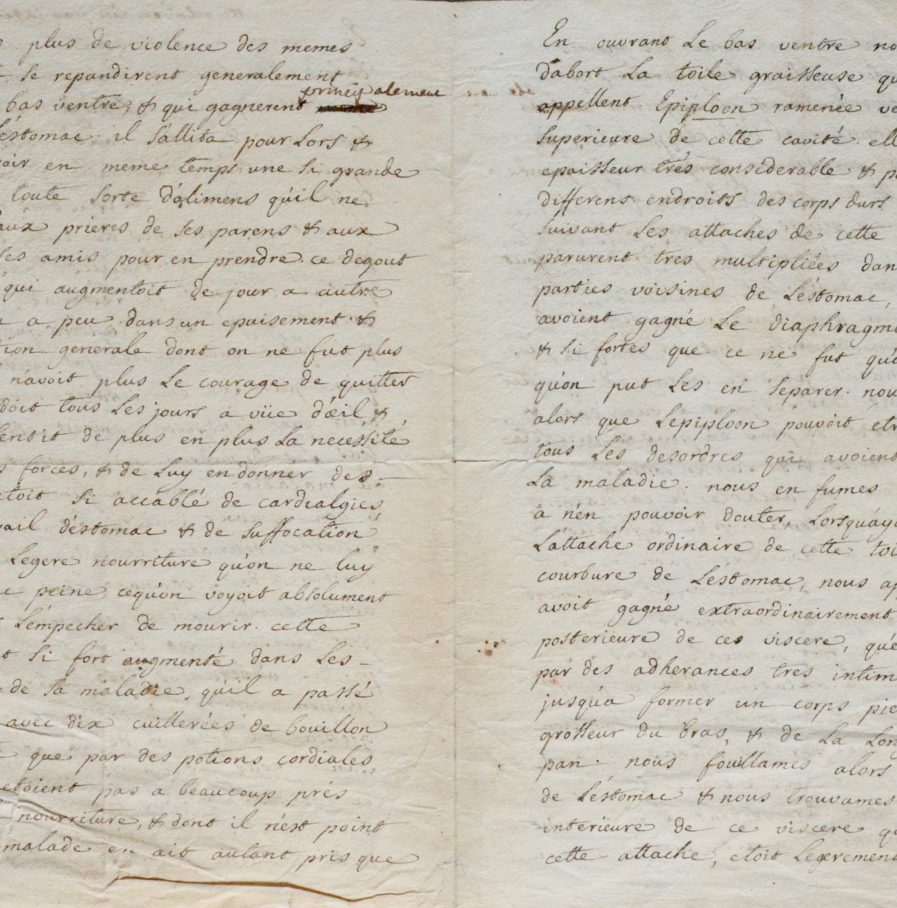 plus de violence des memes
se repandirent generalement
principalement
bas ventre, & qui gagnerent
Léstomac. il sállita pour Lors &
oir en meme temps une si grande
toute sorte dálimens quíl ne
aux prieres de ses parens & aux
ses amis pour en prendre. ce degout
qui augmentoit de jour a autre
a peu dans un epuisement &
tion generale dont on ne fut plus
návoit plus Le courage de quitter
doit tous Les jours a vüe dóeil &
entit de plus en plus La necéssité
s forces, & de Luy en donner des
etoit si accablé de cardialgies,
vail déstomac & de suffocation
Legere nourriture quón ne luy
c peine cequón voyoit absolument
Lémpecher de mourir. cette
t si fort augmenté dans Les-
de sa maladie, quíl a passé
avec dix cuillerées de bouillon
que par des potions cordiales
etoient pas a beaucoup prés
nourriture, & dont il nést point
malade en ait autant pris que
En ouvrant Le bas ventre no
dábort La toile graisseuse qu
appellent Epiploon ramenée ve
superieure de cette cavité. ell
epaisseur trés considerable & p
differens endroits des corps durs
suivant Les attaches de cette
parurent tres multipliées dan
parties voisines de Léstomac,
avoient gagné Le diaphragme
& si fortes que ce ne fut qué
quón put Les en separer. nou
alors que Lepiploon pouvoit etr
tous Les desordres qui avoient
La maladie. nous en fumes
a nén pouvoir douter, Lorsquáya
Láttache ordinaire de cette toi
courbure de Léstomac, nous ap
avoit gagné extraordinairement
posterieure de ces viscere, qué
par des adherances tres intim
jusquá former un corps pie
grosseur du bras, & de La Lon
pan. nous fouillames alors
de Léstomac & nous trouvames
interieure de ce viscere q
cette attache, etoit Legerement